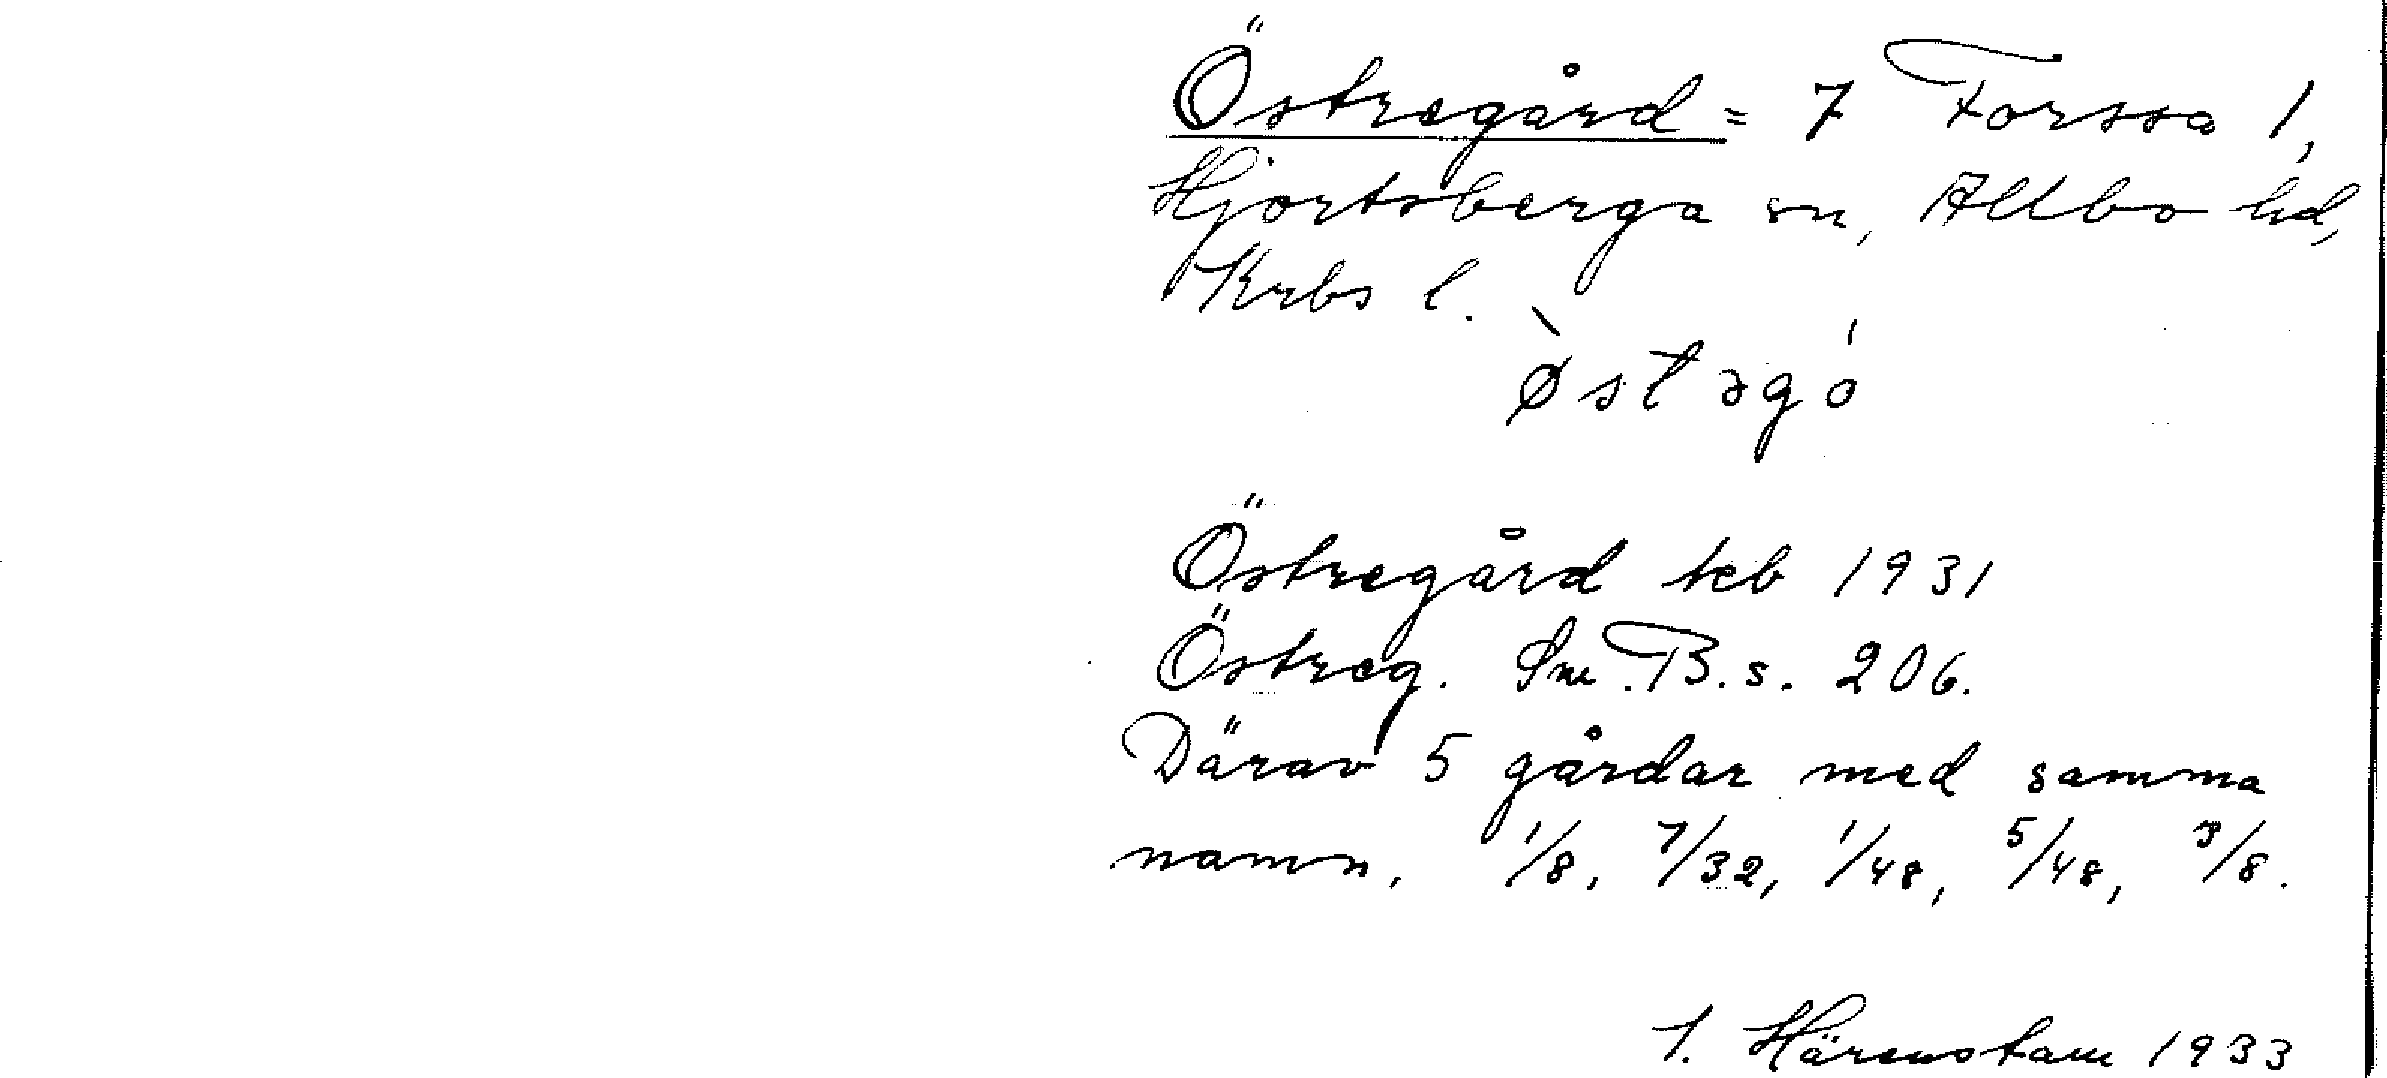 Östregård = 7 Forssa 1,
Hjortsberga sn, Allbo hd,
Krbs l.
Östregård teb 1931
Östreg. Sm.B.s. 206.
Därav 5 gårdar med samma
namn. 1/8, 7/32, 1/48, 5/48, 3/8.
Härenstam 1933